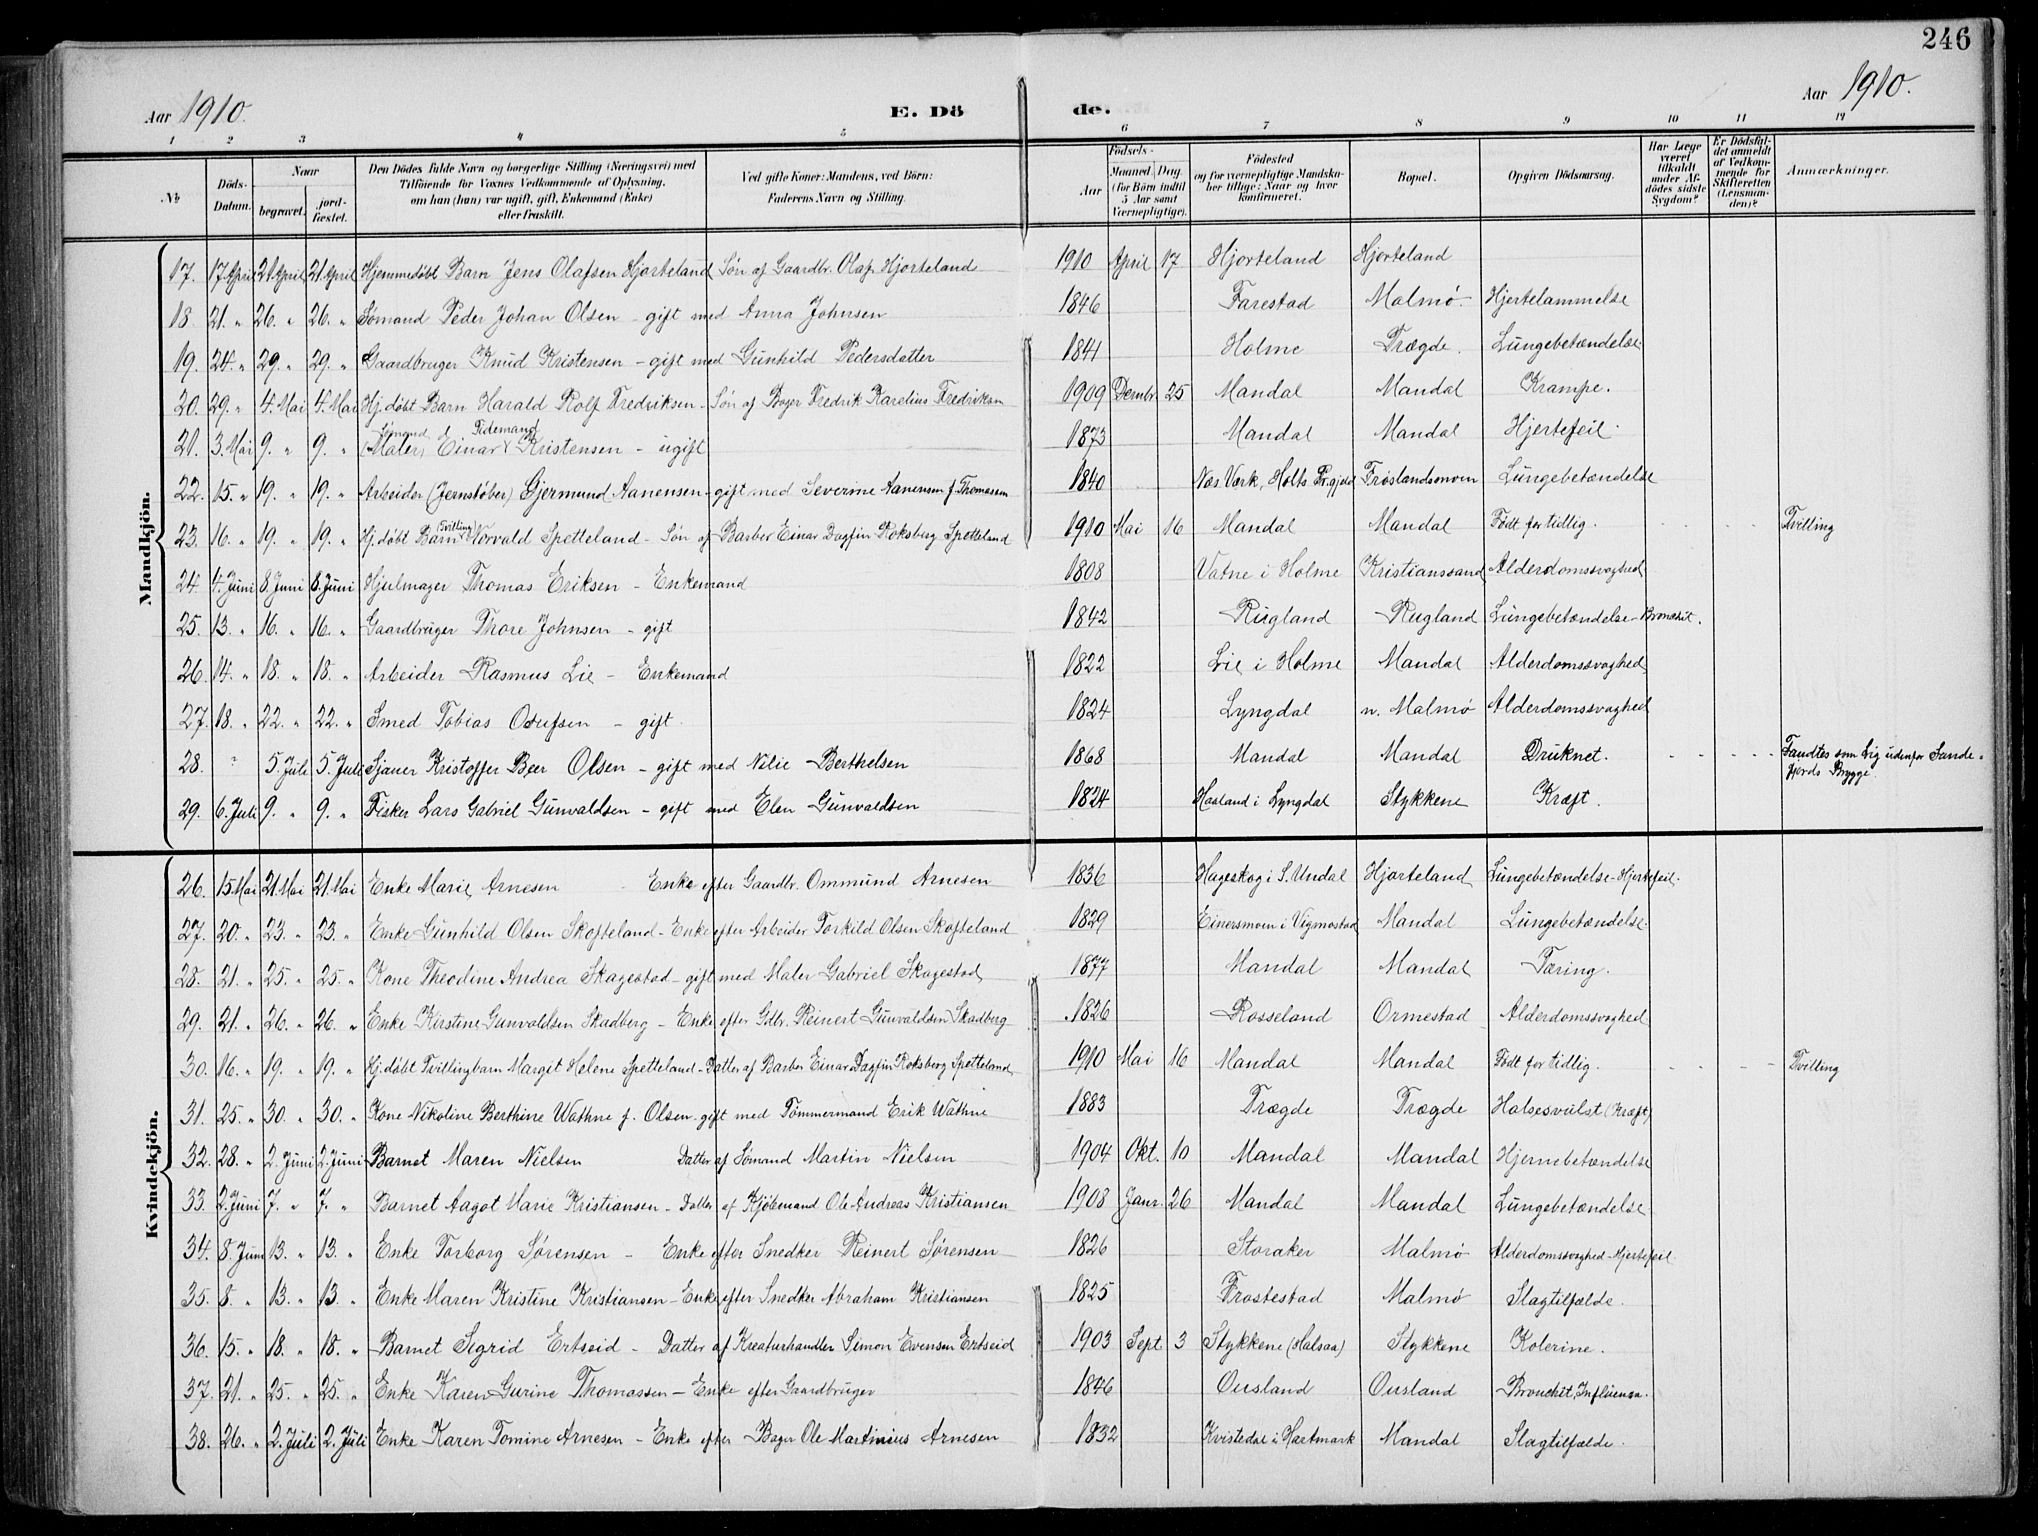 246
Aar 1910. E. Dö de. Aar 1910.
1 2 3 4 5 6 7 8 9 10 11 12
No Döds-Datum. Naar begravet. jord-fæstet. Den Dödes fulde Navn og borgerlige Stilling (Næringsvei) med Tilföiende for Voxnes Vedkommende af Oplysning, om han (hun) var ugift, gift, Enkemand (Enke) eller fraskilt. Ved gifte Koner: Mandens, ved Börn: Faderens Navn og Stilling. Aar Födsels- Maaned Dag (for Börn indtil 5 Aar samt Værnepligtige). Födested og for værnepligtige Mandska-ber tillige: Naar og hvor konfirmeret. Bopæl. Opgiven Dödsaarsag. Har Læge været tilkaldt under Af-dödes sidste Sygdom? Er Dödsfal-det anmeldt af Vedkom-mende for Skifteretten (Lensman-den)? Anmærkninger.
Mandkjön.
17. 17 April 21 April 21 April Hjemmedøbt Barn Jens Olafsen Hjorteland Søn af Gaardbr. Olaf Hjorteland 1910 April 17 Hjorteland Hjorteland
18 21. „ 26. „ 26. „ Sømand Peder Johan Olsen – gift med Anna Johnsen 1846 Farestad Malmø. Hjertelammelse
19. 24. „ 29. „ 29. „ Gaardbruger Knud Kristensen – gift med Gunhild Pedersdatter 1841 Holme Trægde. Lungebetændelse.
20. 29. „ 4. Mai 4. Mai Hj. døbt Barn Harald Rolf Fredriksen – Søn af Bager Fredrik Karelius Fredriksen 1909 Dembr. 25 Mandal Mandal Krampe.
21. 3. Mai 9. „ 9. „ Sømand (Maler) Einar Tidemand Kristensen – ugift 1873 Mandal Mandal Hjertefeil.
22. 15. „ 19. „ 19. „ Arbeider (Jernstøber) Gjermund Aanensen – gift med Severine Aanensen f. Thomassen 1840 Næs Værk, Holts Pr.gjeld Frøslandsmoen Lungebetændelse
23. 16. „ 19. „ 19. „ Hj. døbt Barn (Tvilling) Norvald Spetteland – Søn af Barber Einar Dagfin Roksberg Spetteland 1910 Mai 16 Mandal Mandal Født for tidlig. Tvilling
24. 4. Juni 8. Juni 8. Juni Hjulmager Thomas Eriksen – Enkemand 1808 Vatne i Holme Kristianssand Alderdomssvaghed
25. 13. „ 16. „ 16. „ Gaardbruger Thore Johnsen – gift 1842 Rugland Rugland Lungebetændelse – Bronchit.
26. 14. „ 18. „ 18. „ Arbeider Rasmus Lie – Enkemand 1822 Lie i Holme Mandal Alderdomssvaghed
27. 18. „ 22. „ 22. „ Smed Tobias Osufsen – gift. 1824 Lyngdal n. Malmø Alderdomssvaghed
28. ? 5. Juli 5. Juli Sjauer Kristoffer Beer Olsen – gift med Nilie Berthelsen 1868 Mandal Mandal Druknet. Fandtes som Lig udenfor Sande-fjords Brygge.
29. 6. Juli 9. „ 9. „ Fisker Lars Gabriel Gunvaldsen – gift med Elen Gunvaldsen 1824 Haaland i Lyngdal Stykkene Kræft.
Kvindekjön.
26. 15 Mai 21 Mai 21 Mai Enke Marie Arnesen Enke efter Gaardbr. Ommund Arnesen 1836 Hageskog i S. Undal Hjorteland Lungebetændelse – Hjertefeil.
27. 20. „ 23. „ 23. „ Enke Gunhild Olsen Skofteland – Enke efter Arbeider Torkild Olsen Skofteland 1829 Einersmoen i Vigmostad Mandal Lungebetændelse.
28. 21. „ 25. „ 25. „ Kone Theodine Andrea Skagestad – gift med Maler Gabriel Skagestad 1877 Mandal Mandal Tæring.
29. 21. „ 26. „ 26. „ Enke Kirstine Gunvaldsen Skadberg – Enke efter Gdbr. Reinert Gunvaldsen Skadberg 1826 Rosseland Ormestad Alderdomssvaghed
30. 16. „ 19. „ 19. „ Hj. døbt Tvillingbarn Margit Helene Spetteland – Datter af Barber Einar Dagfin Roksberg Spetteland 1910 Mai 16 Mandal Mandal Født for tidlig. Tvilling
31. 25. „ 30. „ 30. „ Kone Nikoline Berthine Wathne f. Olsen gift med Tømmermand Erik Wathne 1883 Trægde Trægde Halsesvulst (Kræft)
32. 28. „ 2. Juni 2. Juni Barnet Maren Nielsen Datter af Sømand Martin Nielsen 1904 Okt. 10 Mandal Mandal Hjernebetændelse
33. 2. Juni 7. „ 7. „ Barnet Aagot Marie Kristiansen – Datter af Kjøbmand Ole Andreas Kristiansen 1908 Janr. 26 Mandal Mandal Lungebetændelse
34. 8. Juni 13. „ 13. „ Enke Torborg Sørensen – Enke efter Snedker Reinert Sørensen 1826 Storaker Malmø Alderdomssvaghed – Hjertefeil.
35. 8. „ 13. „ 13. „ Enke Maren Kristine Kristiansen – Enke efter Snedker Abraham Kristiansen 1825 Frostestad Malmø Slagtilfælde.
36. 15. „ 18. „ 18. „ Barnet Sigrid Ertseid – Datter af Kreaturhandler Simon Evensen Ertseid 1903 Sept. 3 Stykkene (Halsaa) Stykkene Kolerine.
37. 21. „ 25. „ 25. „ Enke Karen Gurine Thomassen – Enke efter Gaardbruger 1846 Ousland Ousland Bronchit, Influensa.
38. 26. „ 2. Juli 2. Juli Enke Karen Tomine Arnesen – Enke efter Bager Ole Martinius Arnesen 1832 Kvistedal i Hartmark Mandal Slagtilfælde.